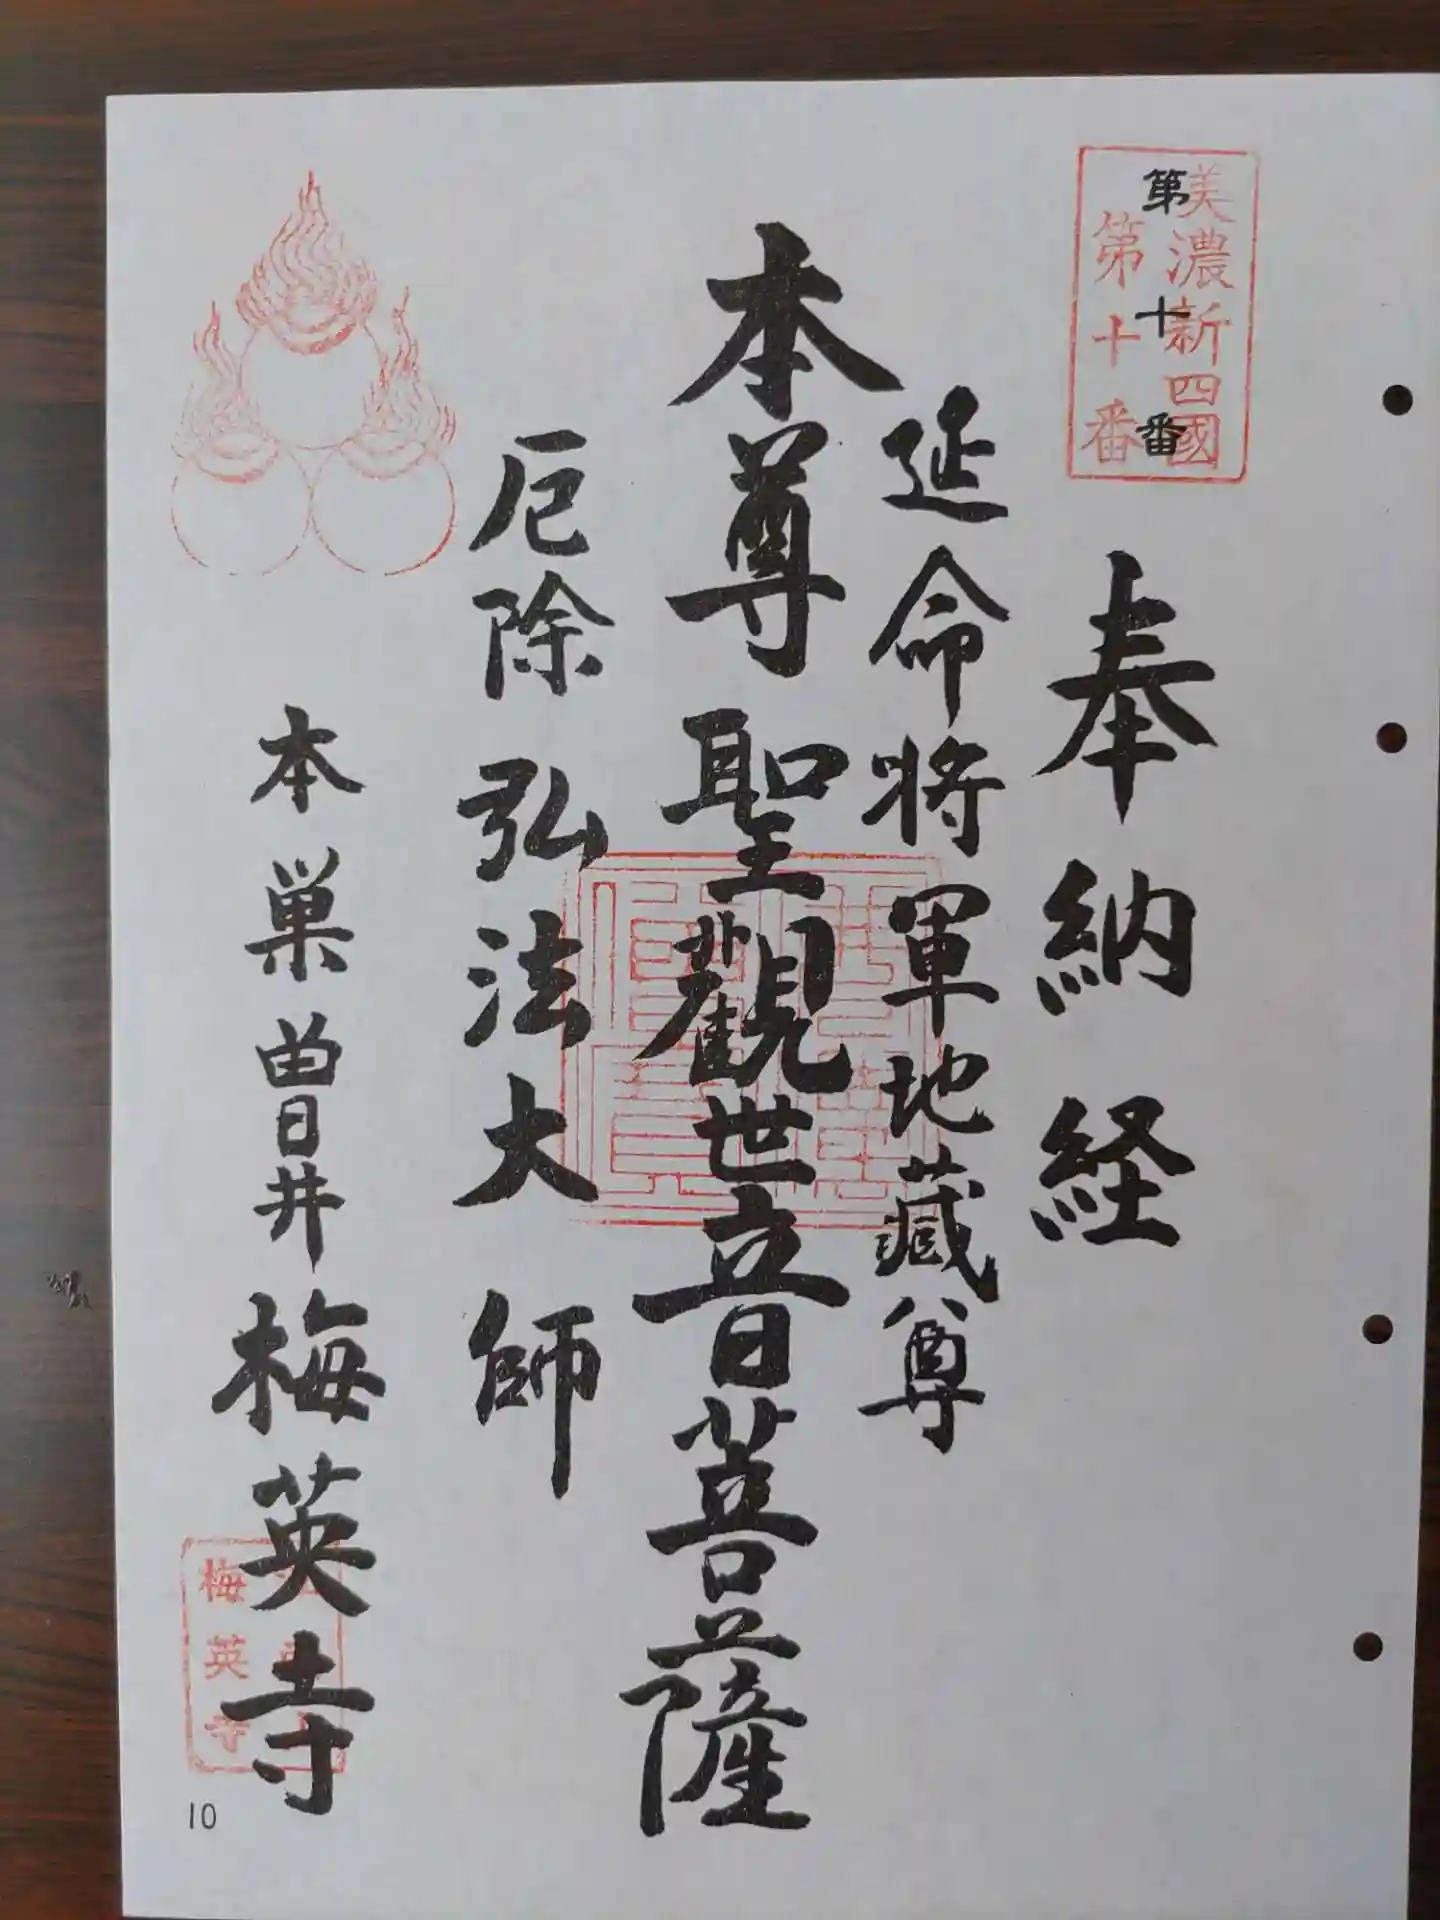 美濃新四國
第十番
第十番
奉納経
延命将軍地藏尊
本尊聖觀世音菩薩
厄除弘法大師
本巣曽井梅英寺
梅英寺
10